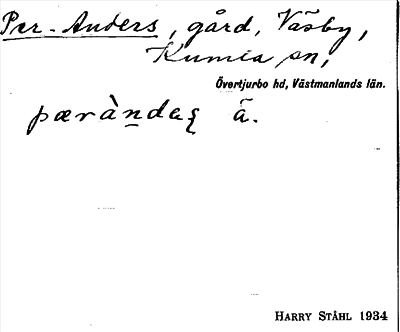 Per-Anders, gård, Väsby,
Kumla sn,
Övertjurbo hd, Västmanlands län.
pærànda ä.
HARRY STÅHL 1934